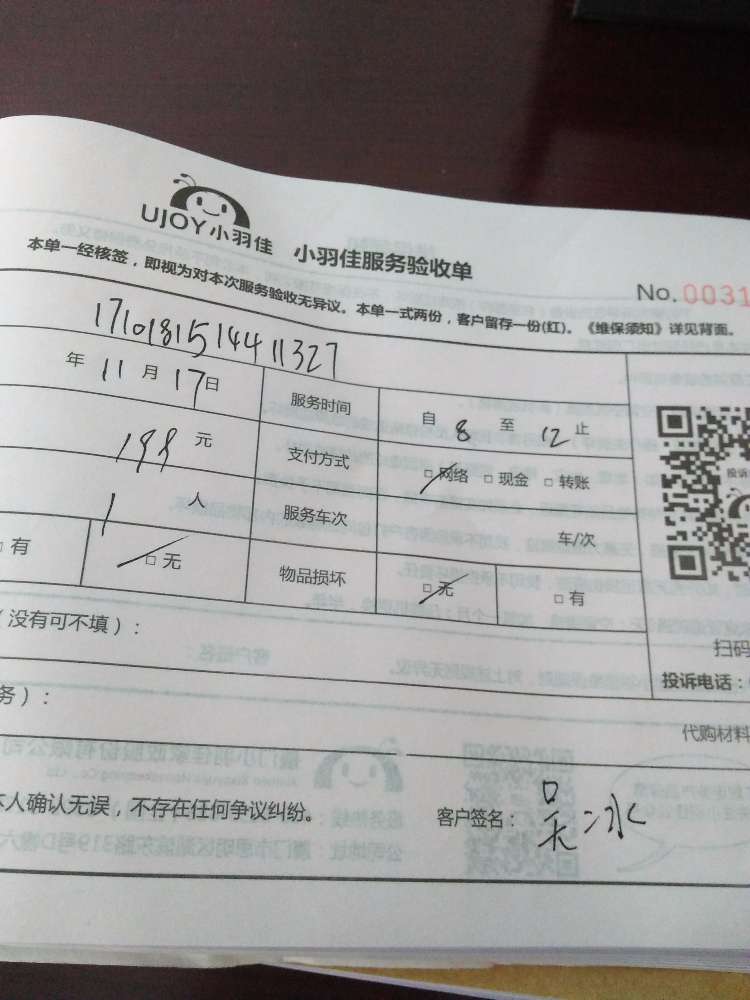 UJOY小羽佳 小羽佳服务验收单
No.0031
本单一经核签，即视为对本次服务验收无异议。本单一式两份，客户留存一份(红)。《维保须知》详见背面。
171018151441 1327
年 11 月 17 日 服务时间 自 8 至 12 止
198 元 支付方式 □网络 □现金 □转账
1 人 服务车次 车/次
□有 □无 物品损坏 □无 □有
投诉
扫码
（没有可不填）：
投诉电话：
务）：
代购材料
本人确认无误，不存在任何争议纠纷。 客户签名：吴冰